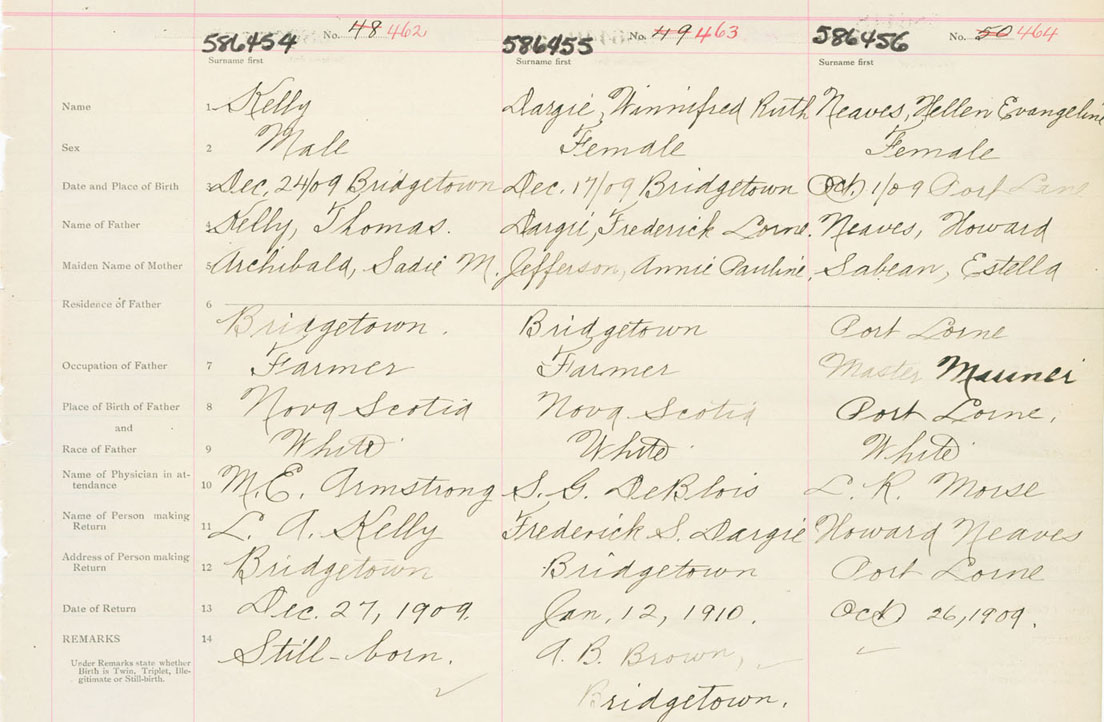 586454 No. 48 462 586455 No. 49 463 586456 No. 50 464
Surname first Surname first Surname first
Name 1 Kelly Dargie, Winnifred Ruth Neaves, Hellen Evangeline
Sex 2 Male Female Female
Date and Place of Birth 3 Dec. 24/09 Bridgetown Dec. 17/09 Bridgetown Oct. 1/09 Port
Name of Father 4 Kelly, Thomas. Dargie, Frederick Lorne. Neaves, Howard
Maiden Name of Mother 5 Archibald, Sadie M. Jefferson, Annie Pauline, Sabean, Estella
Residence of Father 6
Bridgetown. Bridgetown Port Lorne
Occupation of Father 7 Farmer Farmer Master
Place of Birth of Father 8 Nova Scotia Nova Scotia Port Lorne,
and
Race of Father 9 White White White
Name of Physician in at-
tendance 10 M. E. Armstrong S. G. DeBlois L. R. Morse
Name of Person making
Return 11 L. A. Kelly Frederick S. Dargie Howard Neaves
Address of Person making
Return 12 Bridgetown Bridgetown Port Lorne
Date of Return 13 Dec. 27, 1909. Jan. 12, 1910. Oct 26, 1909.
REMARKS 14 Still-born. A. B. Brown,
Under Remarks state whether
Birth is Twin, Triplet, Ille-
gitimate or Still-birth.
Bridgetown.